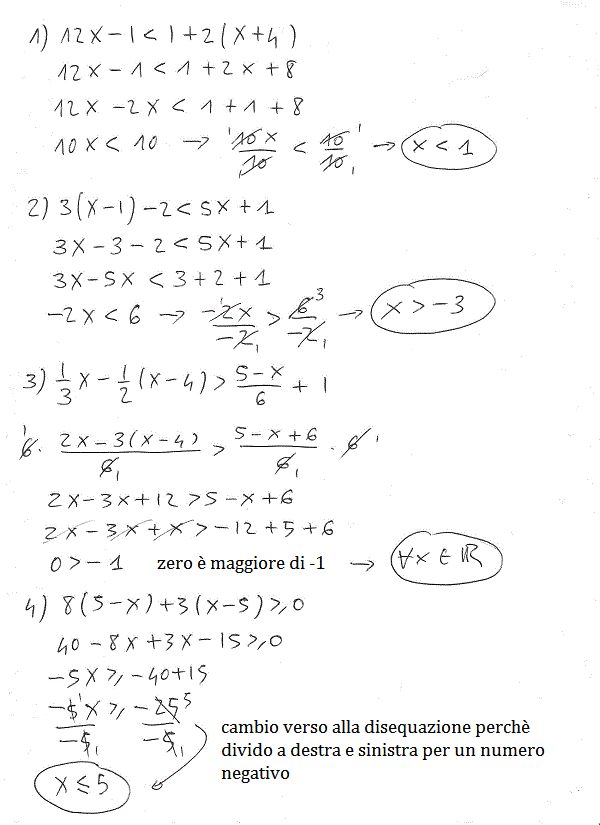 1) 12x - 1 < 1 + 2(x+4)
12x - 1 < 1 + 2x + 8
12x - 2x < 1 + 1 + 8
10x < 10 → 10x/10 < 10/10 → x < 1
2) 3(x-1) - 2 < 5x + 1
3x - 3 - 2 < 5x + 1
3x - 5x < 3 + 2 + 1
-2x < 6 → -2x/-2 > 6/-2 → x > -3
3) 1/3 x - 1/2 (x-4) > 5-x/6 + 1
6 · 2x-3(x-4)/6 > 5-x+6/6 · 6
2x - 3x + 12 > 5 - x + 6
2x - 3x + x > -12 + 5 + 6
0 > -1 zero è maggiore di -1 → ∀x ∈ ℝ
4) 8(5-x) + 3(x-5) ≥ 0
40 - 8x + 3x - 15 ≥ 0
-5x ≥ -40+15
-5x/-5 ≥ -25/-5
cambio verso alla disequazione perchè
divido a destra e sinistra per un numero
negativo
x ≤ 5